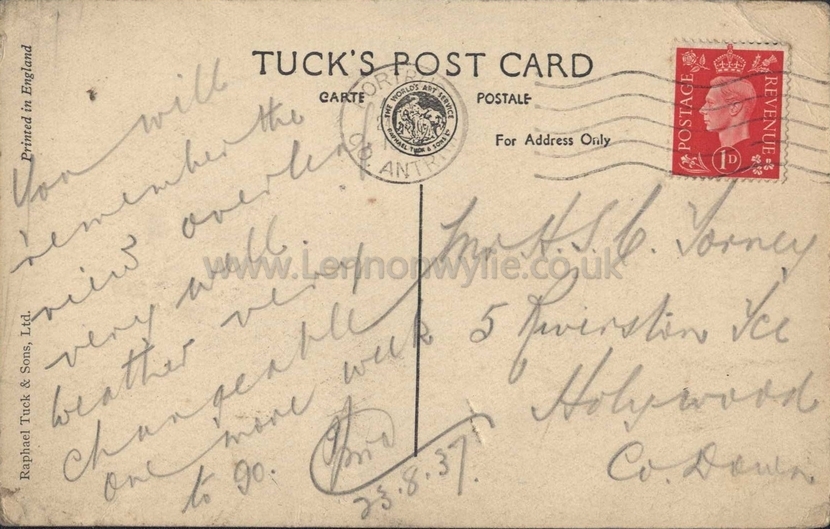 TUCK'S POST CARD
CARTE POSTALE
For Address Only
PORTR
CO. ANTRIM
THE WORLD'S ART SERVICE
RAPHAEL TUCK & SONS LTD
POSTAGE
REVENUE
1D
Printed in England
Raphael Tuck & Sons, Ltd.
You will
remember the
view overleaf
very well.
Weather very
changeable
one more week
to go.
23.8.37.
Mr H.S.C. Torney
5 Riverston Tce
Holywood
Co. Down.
www.Lennonwylie.co.uk